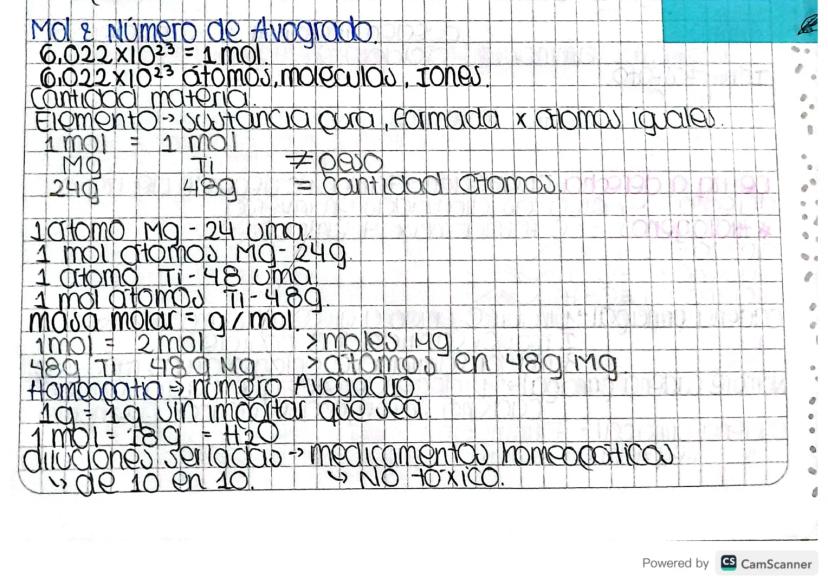 Mol & Número de Avogrado.
6,022x10²³ = 1 mol.
6,022x10²³ átomos, moléculas, Iones.
Cantidad materia.
Elemento → sustancia pura, formada x átomos iguales.
1 mol = 1 mol
Mg Ti ≠ peso
24g 48g = cantidad átomos.
1 átomo Mg - 24 uma.
1 mol átomos Mg - 24g.
1 átomo Ti - 48 uma
1 mol átomos Ti - 48g.
masa molar = g/mol.
1mol = 2mol >moles Mg
48g Ti 48g Mg >átomos en 48g Mg.
Homeópata ⇒ número Avogadro
1g = 1g sin importar que sea.
1 mol = 18g = H2O
diluciones seriadas → medicamentos homeopáticos
↳ de 10 en 10. ↳ NO tóxico.
Powered by CS CamScanner